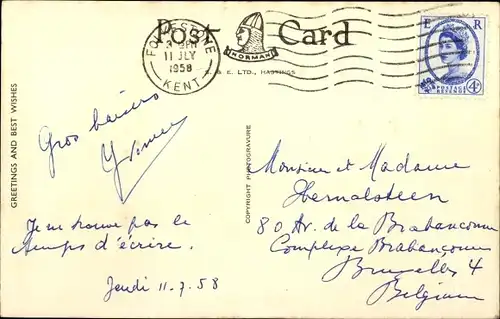 Post Card
NORMAN
FOLKESTONE
11 JLY
1958
KENT
E R
4D
POSTAGE
REVENUE
& E. LTD., HASTINGS
GREETINGS AND BEST WISHES
COPYRIGHT PHOTOGRAVURE
Gros baisers
Je ne trouve pas le
temps d'écrire.
Jeudi 11.7.58
Monsieur et Madame
Hernalsteen
80 Av. de la Brabançonne
Complexe Brabançonne
Bruxelles 4
Belgium